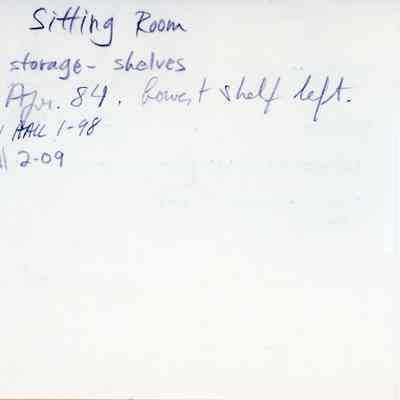 Sitting Room
storage- shelves
Apr. 84. lowest shelf left.
AALL 1-98
2-09